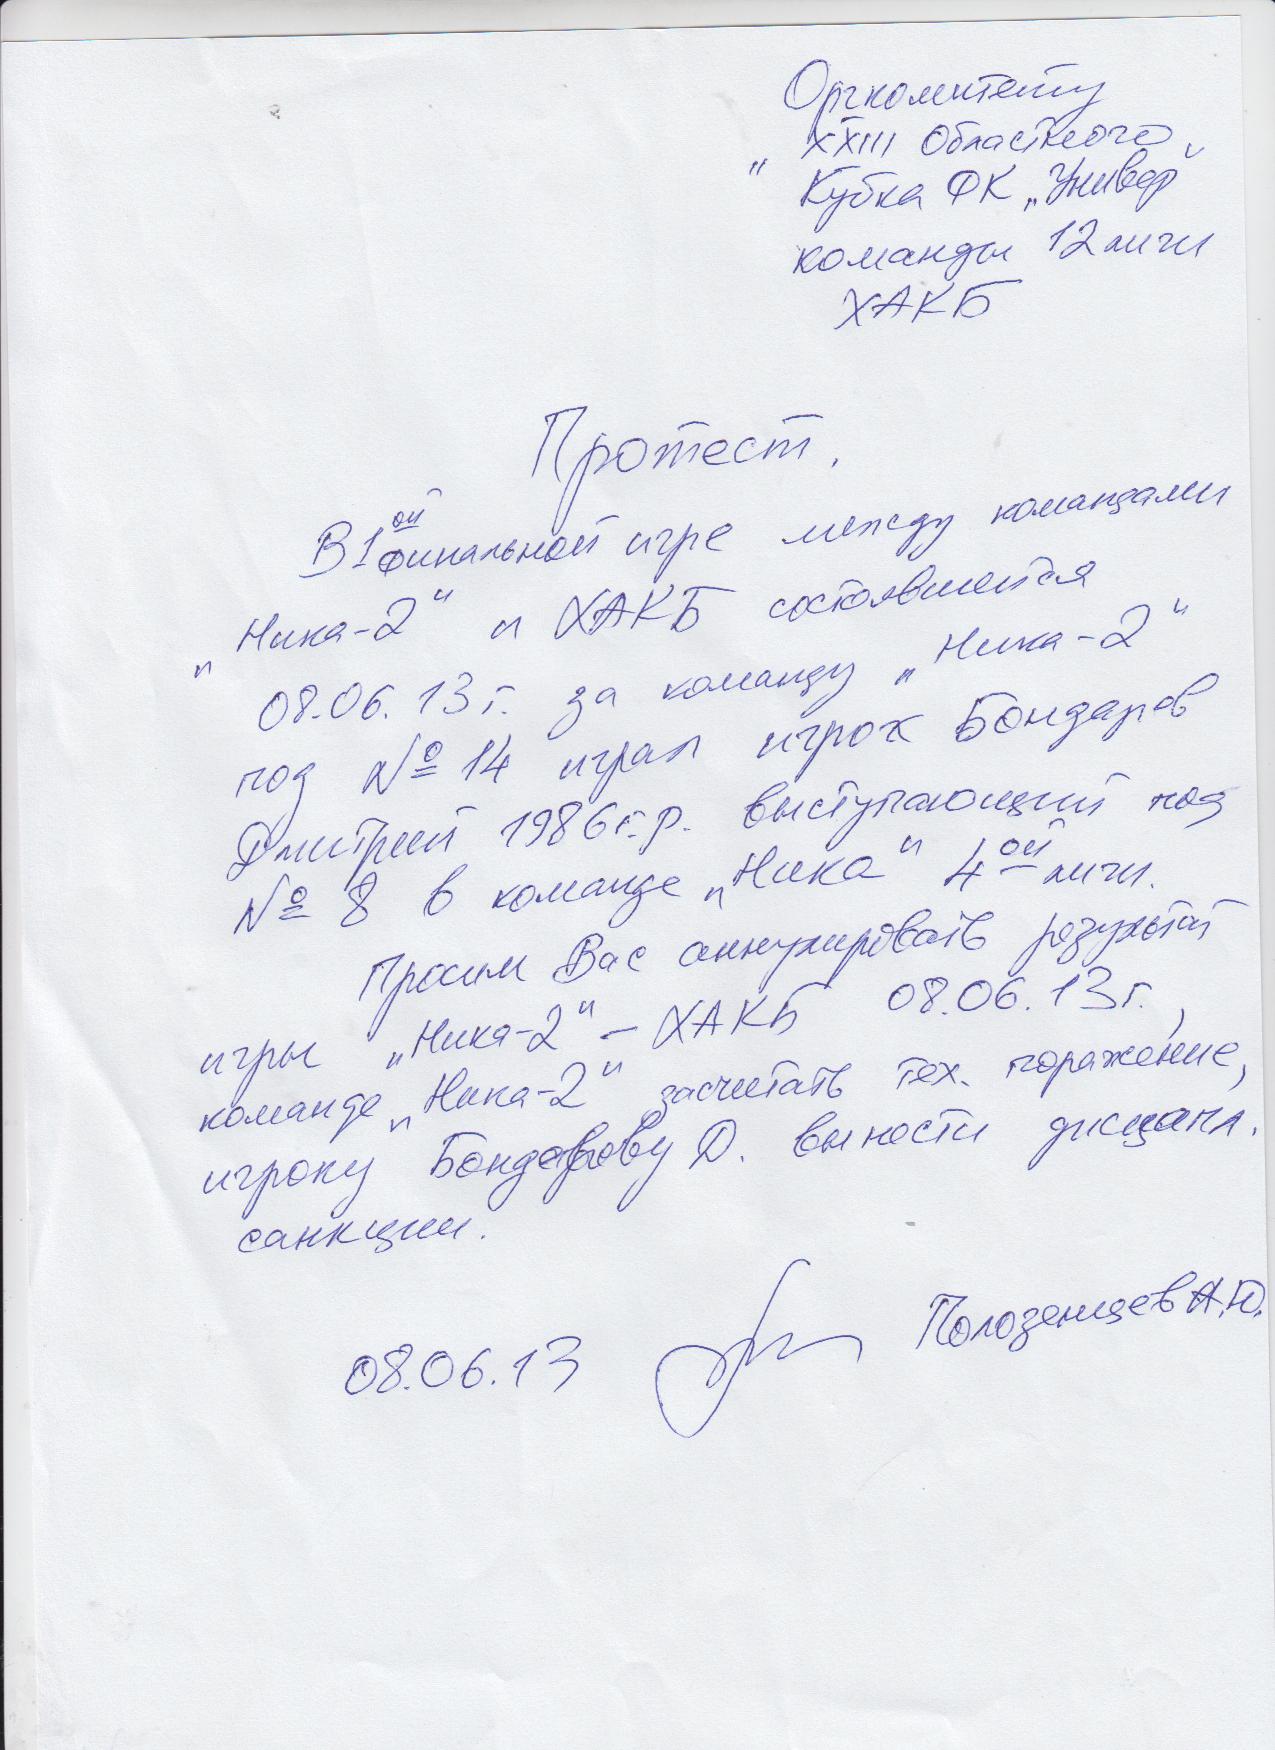 Оргкомитету
XXIII Областного
" Кубка ФК „Универ"
команды 12 лиги
ХАКБ
Протест.
В 1ой финальной игре между командами
„Ника-2" и ХАКБ состоявшейся
08.06.13 г. за команду „Ника-2"
под № 14 играл игрок Бондарев
Дмитрий 1986 г.р. выступающий под
№ 8 в команде „Ника" 4ой лиги.
Просим Вас аннулировать результат
игры „Ника-2" – ХАКБ 08.06.13 г.,
команде „Ника-2" засчитать тех. поражение,
игроку Бондареву Д. вынести дисципл.
санкции.
08.06.13 Полозенцев А.Ю.